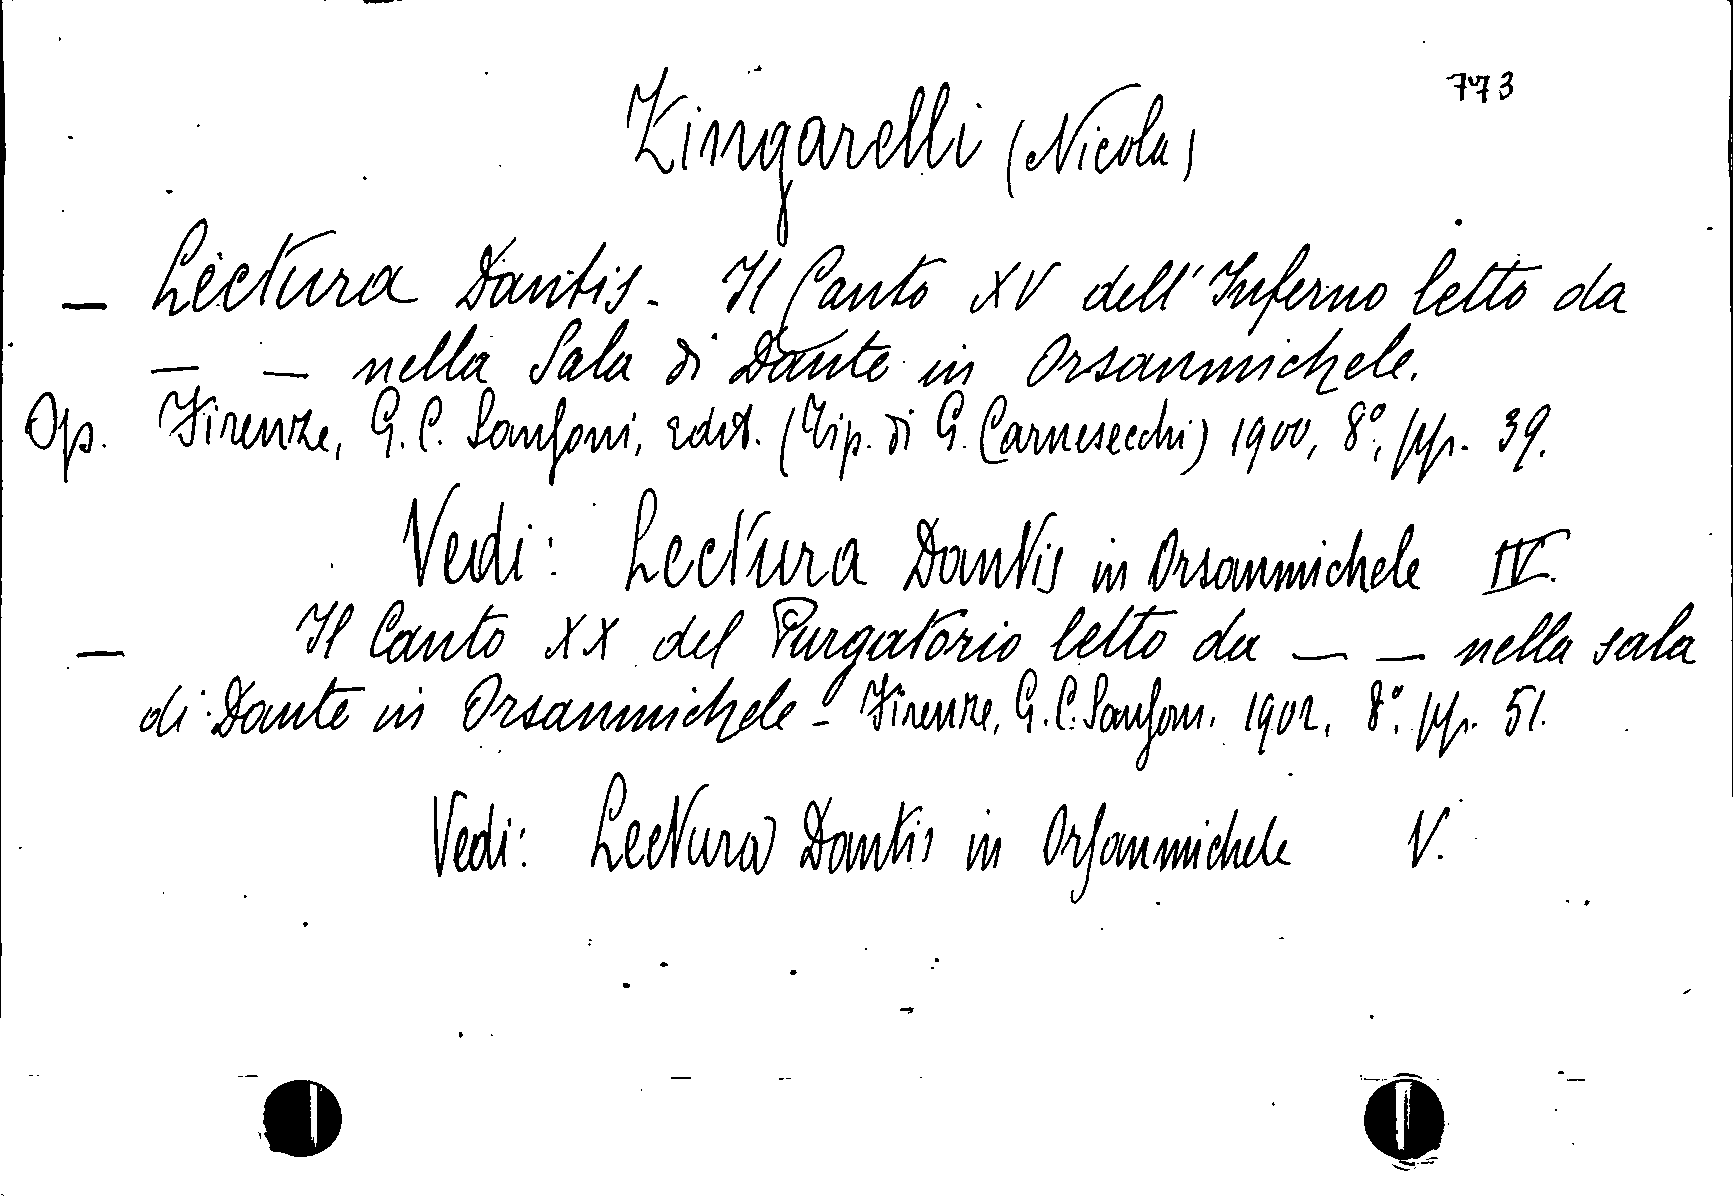 773
Zingarelli (Nicola)
— Lectura Dantis - Il Canto XV dell'Inferno letto da
— — nella Sala di Dante in Orsanmichele.
Op. Firenze, G. C. Sansoni, edit. (Tip. di G. Carnesecchi) 1900, 8°, pp. 39.
Vedi: Lectura Dantis in Orsanmichele IV.
— Il Canto XX del Purgatorio letto da — — nella sala
di Dante in Orsanmichele - Firenze, G. C. Sansoni. 1902. 8°. pp. 51.
Vedi: Lectura Dantis in Orsanmichele V.